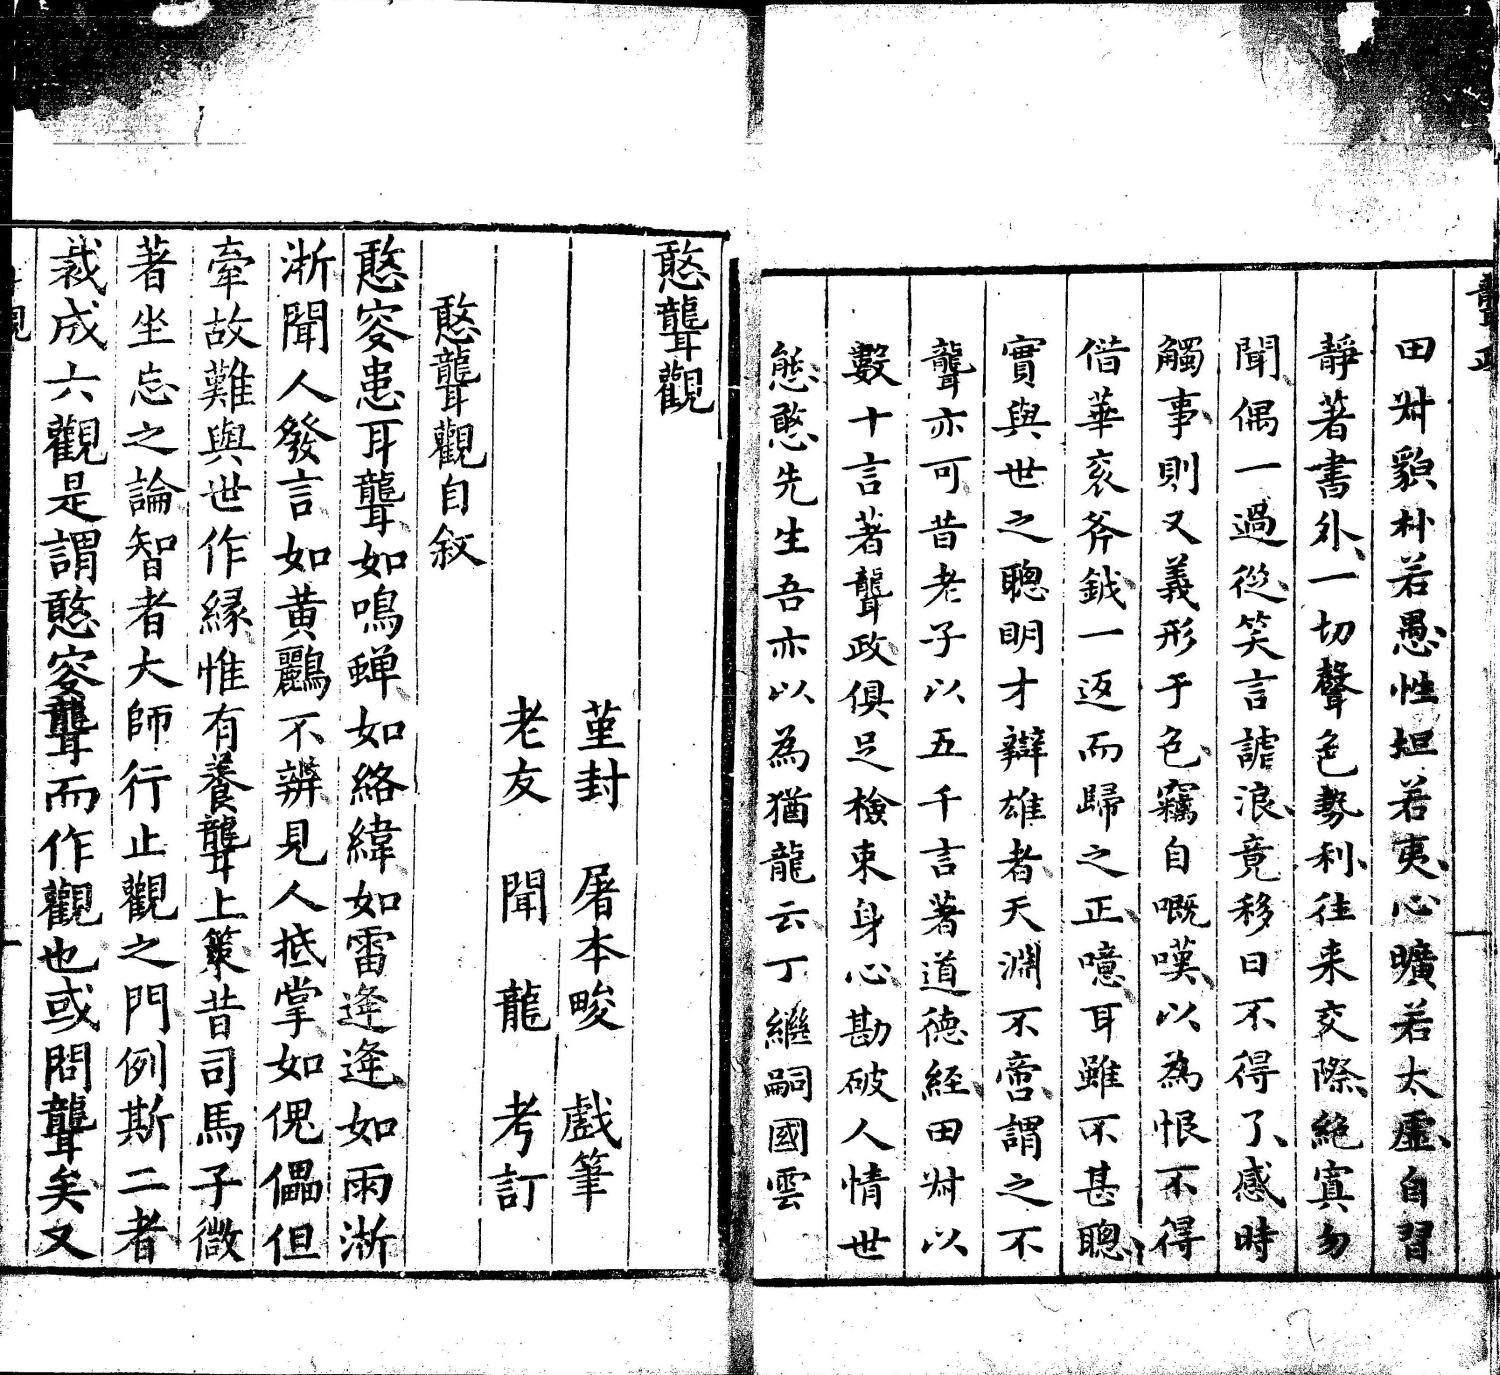 聾政
田叔貌朴若愚性坦若夷心曠若太虛自習
靜著書外一切聲色勢利往来交際絕寘勿
聞偶一過從笑言謔浪竟移日不得了感時
觸事則又義形于色竊自嘅嘆以為恨不得
借華衮斧鉞一返而歸之正噫耳雖不甚聰
實與世之聰明才辯雄者天淵不啻謂之不
聾亦可昔老子以五千言著道德經田叔以
數十言著聾政俱足檢束身心勘破人情世
態憨先生吾亦以為猶龍云丁繼嗣國雲
憨聾觀
堇封 屠本畯 戲筆
老友 聞龍 考訂
憨聾觀自敘
憨叜患耳聾如鳴蟬如絡緯如雷逄逄如雨淅
淅聞人發言如黃鸝不辨見人抵掌如傀儡但
牽故難與世作緣惟有養聾上策昔司馬子微
著坐忘之論智者大師行止觀之門例斯二者
裁成六觀是謂憨叜聾而作觀也或問聾矣又
觀
一